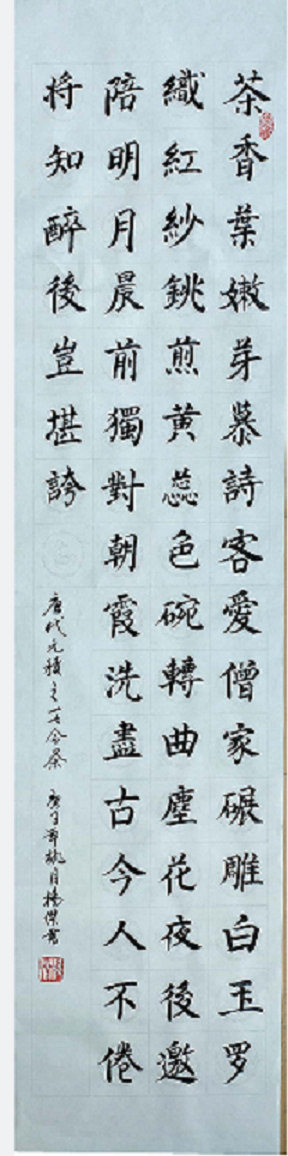 茶香葉嫩芽慕詩客愛僧家碾雕白玉罗
織紅紗銚煎黄蕊色碗轉曲塵花夜後邀
陪明月晨前獨對朝霞洗盡古今人不倦
将知醉後豈堪誇
唐代元稹之一七令茶 庚子年桃月楊傑書